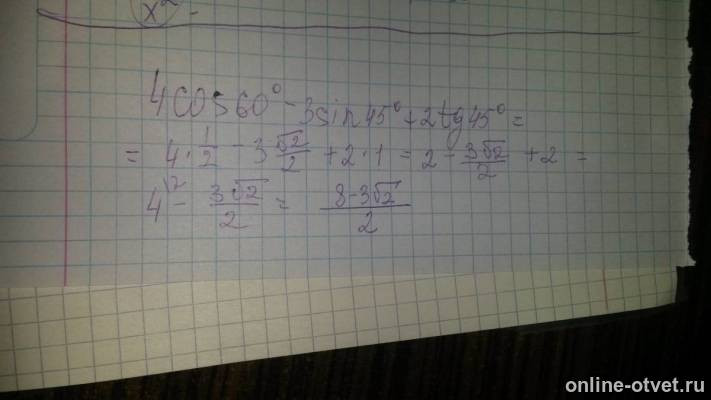 x² -
4cos60° - 3sin45° + 2tg45° =
= 4·1/2 - 3 √2/2 + 2·1 = 2 - 3√2/2 + 2 =
4\2 - 3√2/2 = 8-3√2/2
online-otvet.ru